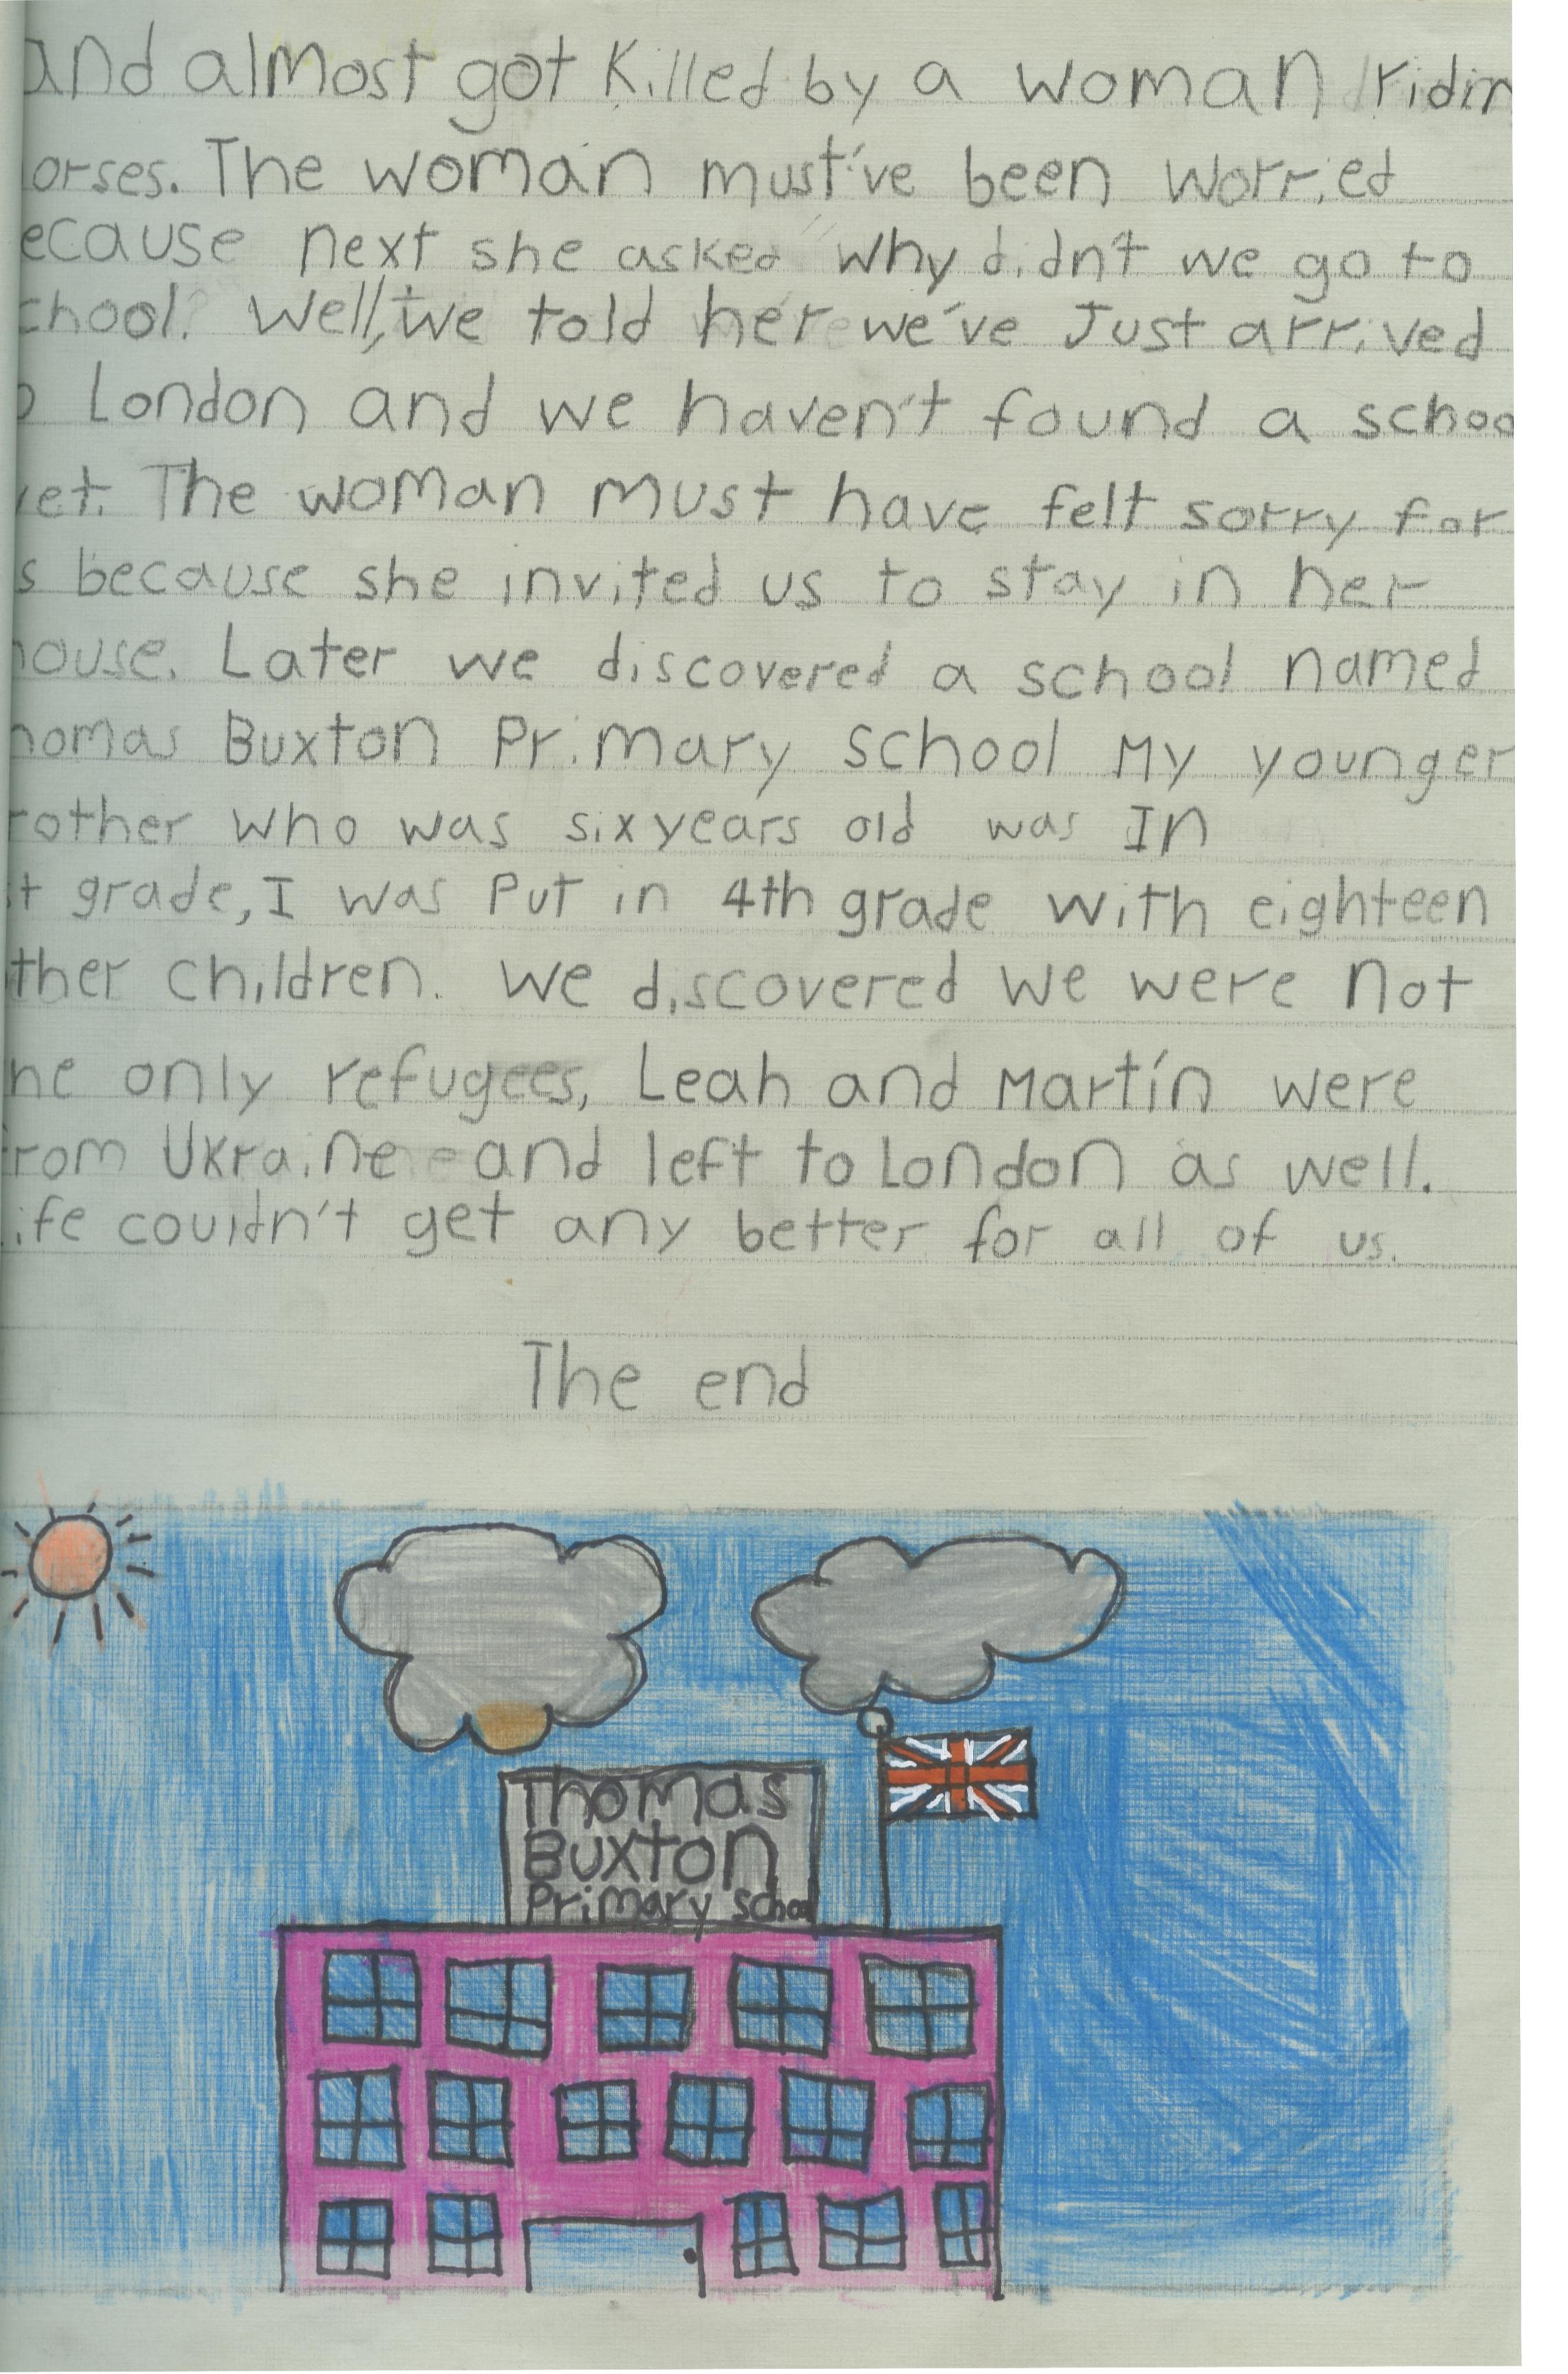 and almost got killed by a woman ridin
orses. The woman must've been worried
ecause next she asked "why didn't we go to
chool? Well, we told her we've Just arrived
o London and we haven't found a schoo
yet. The woman must have felt sorry for
s because she invited us to stay in her
house. Later we discovered a school named
homas Buxton Primary school My younger
rother who was six years old was In
t grade, I was Put in 4th grade with eighteen
ther children. We discovered we were not
he only refugees, Leah and Martín were
from Ukraine and left to London as well.
ife couldn't get any better for all of us.
The end
Thomas
Buxton
Primary School